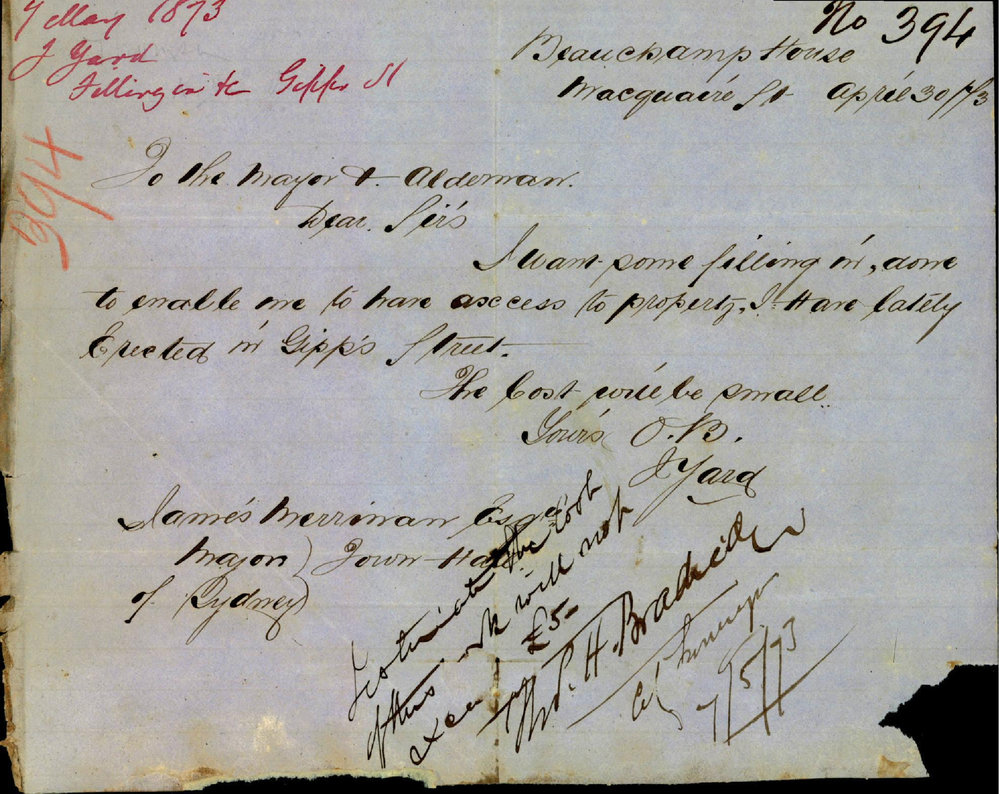 7 May 1873
J Yard
Filling in &c Gipps St
No 394
Beauchamp House
Macquaire St April 30/73
394
To the Mayor & Alderman.
Dear. Sir's
I want some filling in, done
to enable me to have asccess to property, I Have lately
Erected in Gipp's Street.
The Cost will be small.
Your's O.B.
J Yard
James Merriman Esqre
Mayor ) Town Hall
of Sydney )
I estimate the cost
of this work will not
exceed £5-
Thos. H. Bradridge
City Surveyor
7/5/73